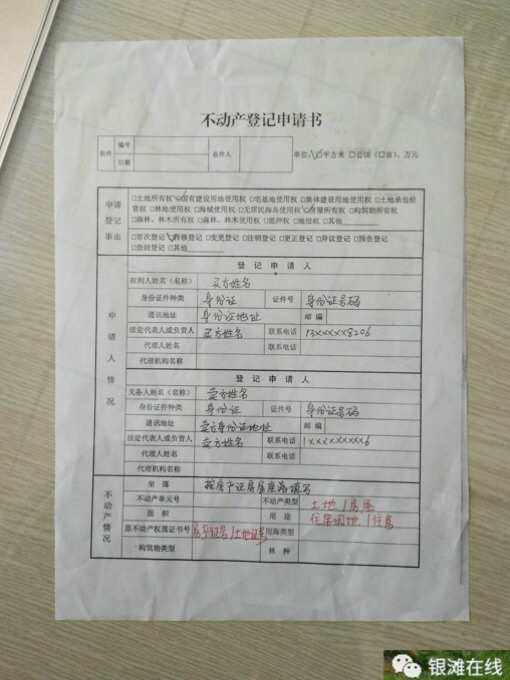 不动产登记申请书
收件 编号 收件人 单位:√平方米 □公顷(□亩)、万元
日期
申请登记事由 □土地所有权 √国有建设用地使用权 □宅基地使用权 □集体建设用地使用权 □土地承包经
营权 □林地使用权 □海域使用权 □无居民海岛使用权 √房屋所有权 □构筑物所有权
□森林、林木所有权 □森林、林木使用权 □抵押权 □地役权 □其他
□首次登记 √转移登记 □变更登记 □注销登记 □更正登记 □异议登记 □预告登记
□查封登记 □其他
申请人情况
登记申请人
权利人姓名(名称) 买方姓名
身份证件种类 身份证 证件号 身份证号码
通讯地址 身份证地址 邮编
法定代表人或负责人 买方姓名 联系电话 13xxxxxx8206
代理人姓名 联系电话
代理机构名称
登记申请人
义务人姓名(名称) 卖方姓名
身份证件种类 身份证 证件号 身份证号码
通讯地址 卖方身份证地址 邮编
法定代表人或负责人 卖方姓名 联系电话 1xxxxxxxxx6
代理人姓名 联系电话
代理机构名称
不动产情况
坐落 按房产证房屋座落填写
不动产单元号 不动产类型 土地/房屋
面积 用途 住宅用地/住宅
原不动产权属证书号 房产证号/土地证号 用海类型
构筑物类型 林种
银滩在线